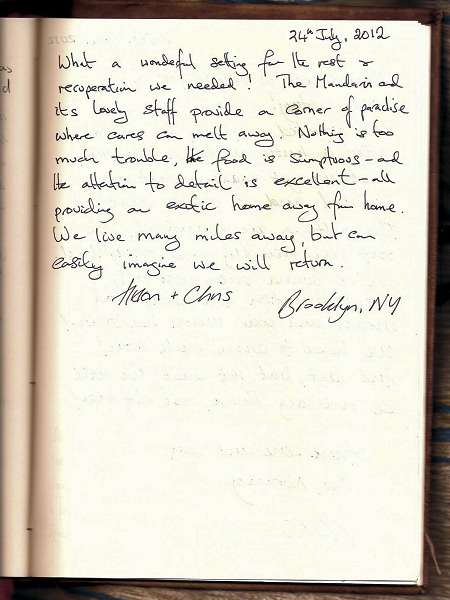 24th July, 2012
What a wonderful setting for the rest &
recuperation we needed! The Mandarin and
its lovely staff provide a corner of paradise
where cares can melt away. Nothing is too
much trouble, the food is sumptuous - and
the attention to detail is excellent - all
providing an exotic home away from home.
We live many miles away, but can
easily imagine we will return.
+ Chris
Brooklyn, NY